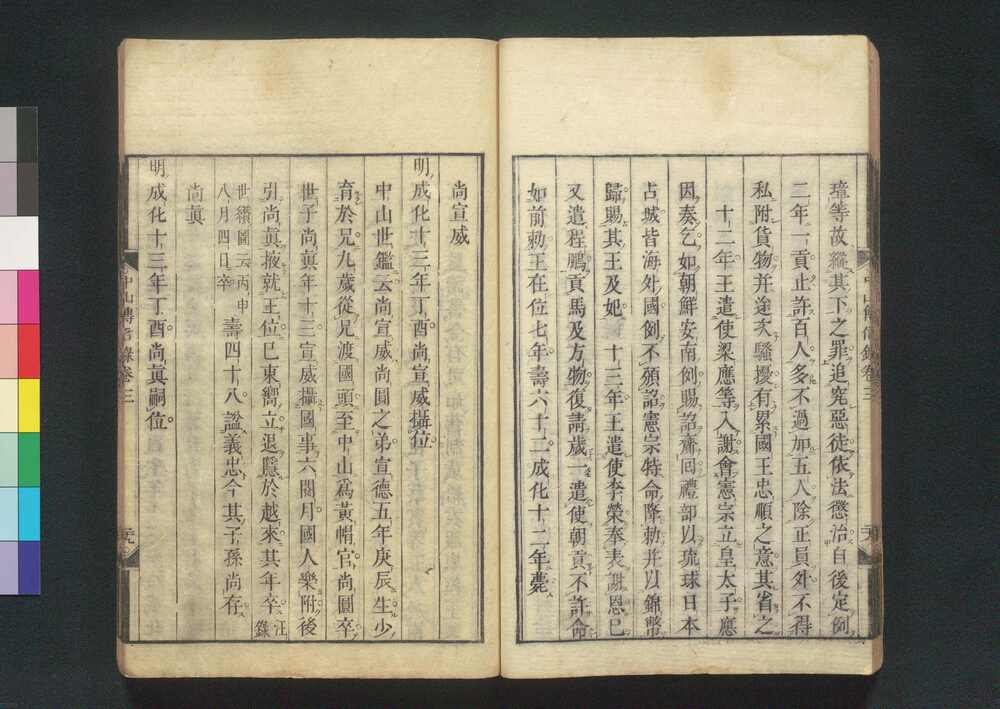 璋等故縱其下之罪追究惡徒依法懲治自後定例
二年一貢止許百人多不過加五人除正員外不得
私附貨物并途次騷擾有累國王忠順之意其省之
十二年王遣使梁應等入謝會憲宗立皇太子應
因奏乞如朝鮮安南例賜詔齎回禮部以琉球日本
占城皆海外國例不頒詔憲宗特命降勅并以錦幣
歸賜其王及妃 十三年王遣使李榮奉表謝恩已
又遣程鵬貢馬及方物復請歲一遣使朝貢不許命
如前勅王在位七年壽六十二成化十二年薨
中山傳信錄卷三
尚宣威
明成化十三年丁酉尚宣威攝位
中山世鑑云尚宣威尚圓之弟宣德五年庚辰生少
育於兄九歲從兄渡國頭至中山爲黃帽官尚圓卒
世子尚眞年十三宣威攝國事六閱月國人樂附後
引尚眞掖就王位已東嚮立退隱於越來其年卒汪錄
世纘圖云丙申八月四日卒壽四十八諡義忠今其子孫尚存
尚眞
明成化十三年丁酉尚眞嗣位
中山傳信錄卷三